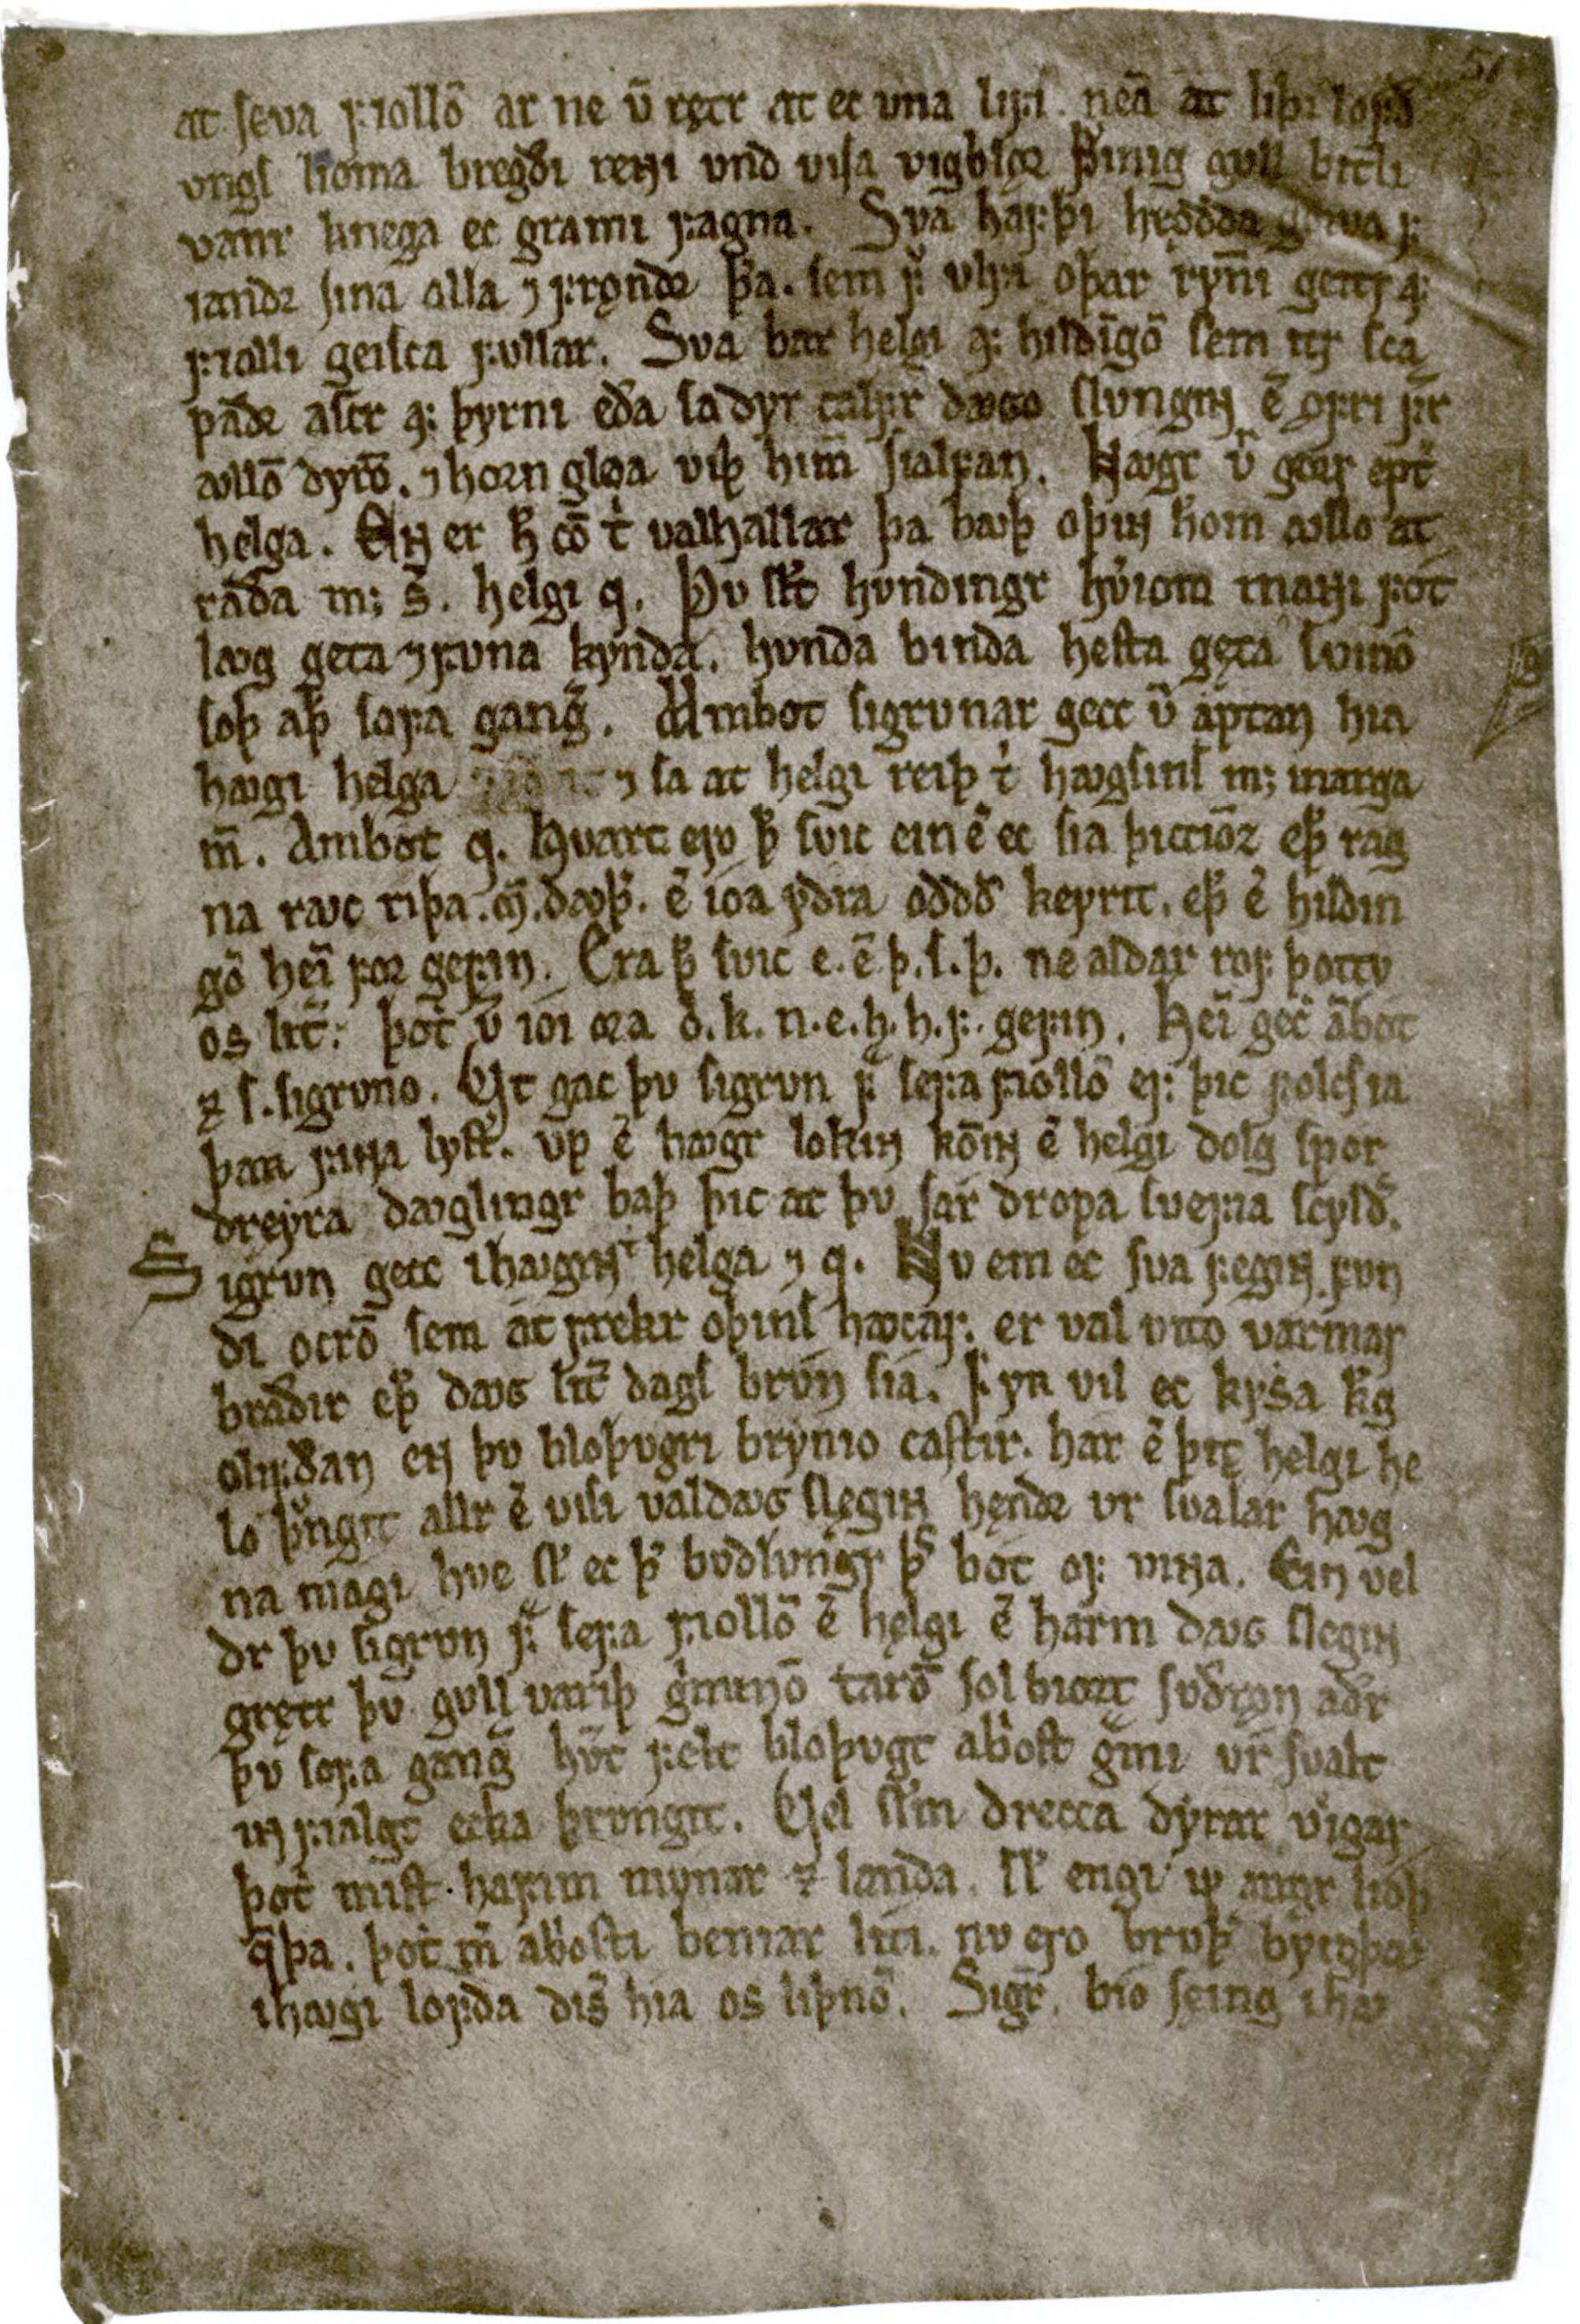 51
at seva fiollō ar ne ū nętr at ec una lífi. nēa at liþi lofð
ungs lioma bregði reɴi und visa vigblęʀ hīnig gull bitli
vanr knega ec grami fagna. Sva hafþi helgi hrędda gorva f
iandꝛ sina alla ⁊ frꝍndꝛ þ̄a. sem f̄ ulfi oþar rynı̄ geitr af
fialli geisca fullar. Sva bar helgi af hildīgō sem itr sca
paðꝛ ascr af þyrni eða sa dyr calfr dꜹgg slunginn ē ꝍfri f̄r
ꜹllō dyrō. ⁊ horn gloa viþ himin sialfaɴ. Hꜹgr v̄ gorr ept̄
helga. Eɴ er h̄ cō t̄ valhallar þa bꜹþ oþiɴ hōom ꜹllo at
raða m; s̄. helgi q. Þu sl̄t hundingr hv̄iom maɴi fot
lꜹg geta ⁊ funa kynda. hunda binda hesta gęta svinō
soþ aþ̄ sofa ganḡ. Ambot sigrunar gecc ū aptaɴ hia
hꜹgi helga ⁊ sa at helgi reiþ t̄ hꜹgsins m; marga
m̄. Ambot q. Hvart ero þ̄ svic ein ē ec sia þicciōz eþ̄ rag
na rꜹc riþa. m̄. dꜹþ̄. ē ioa yðra oddō keyrit. eþ̄ ē hildin
gō heī for gefin. Era þ̄ svic e. ē. þ. s. þ. ne aldar rof þottu
os lit̄. þot̄ v̄ ioi ora o. k. n. e. h. h. f. gefin. Heī gec̄ ābot
⁊ s. sigruno. Ut gac þu sigrun f̄ sefa fiollō ef þic folcs ia
þan fiɴa lyst̄. up ē hꜹgr lokiɴ kōiɴ ē helgi dolg spor
dreyra dꜹglingr baþ þic at þu sar dropa svefia scyld̄.
Sigrun gecc i hꜹginn t̄ helga ⁊ q. Nu em ec sva fegiɴ fun
di ocrō sem at frekir oþins hꜹcar. er val vito varmar
braðir eþ̄ dꜹgg lit̄ dags brun sia. Fyʀ vil ec kyssa k̄g
olifðan eɴ þu bloþugri brynio castir. har ē þitt helgi he
lo þrungit allr ē visi valdꜹgg slegiɴ hendꝛ ur svalar hꜹg
na magi hve sl̄ ec þ̄ buðlungr þ̄s bot of viɴa. Ein vel
dr þu sigrun f̄ sefa fiollō ē helgi ē harm dꜹgg slegiɴ
grętr þu gull variþ g̍mmō tarō sol biort suðrꝍn aðr
þu sofa ganḡ hv̄t fellr bloþugt a briost grāmi ur svalt
iɴ fialgt ecka þrungit. Vel sl̄m drecca dyrar veigar
þot̄ mist hafim munar ⁊ landa. sl̄ engi m̄ angr lioþ
q̄þa. þot̄ m̄r a briosti beniar liti. nu ero bruþ̄ byrgþar
i hꜹgi lofda dis̄ hia os liþnō. Sigr̄. bio sęing i hꜹ